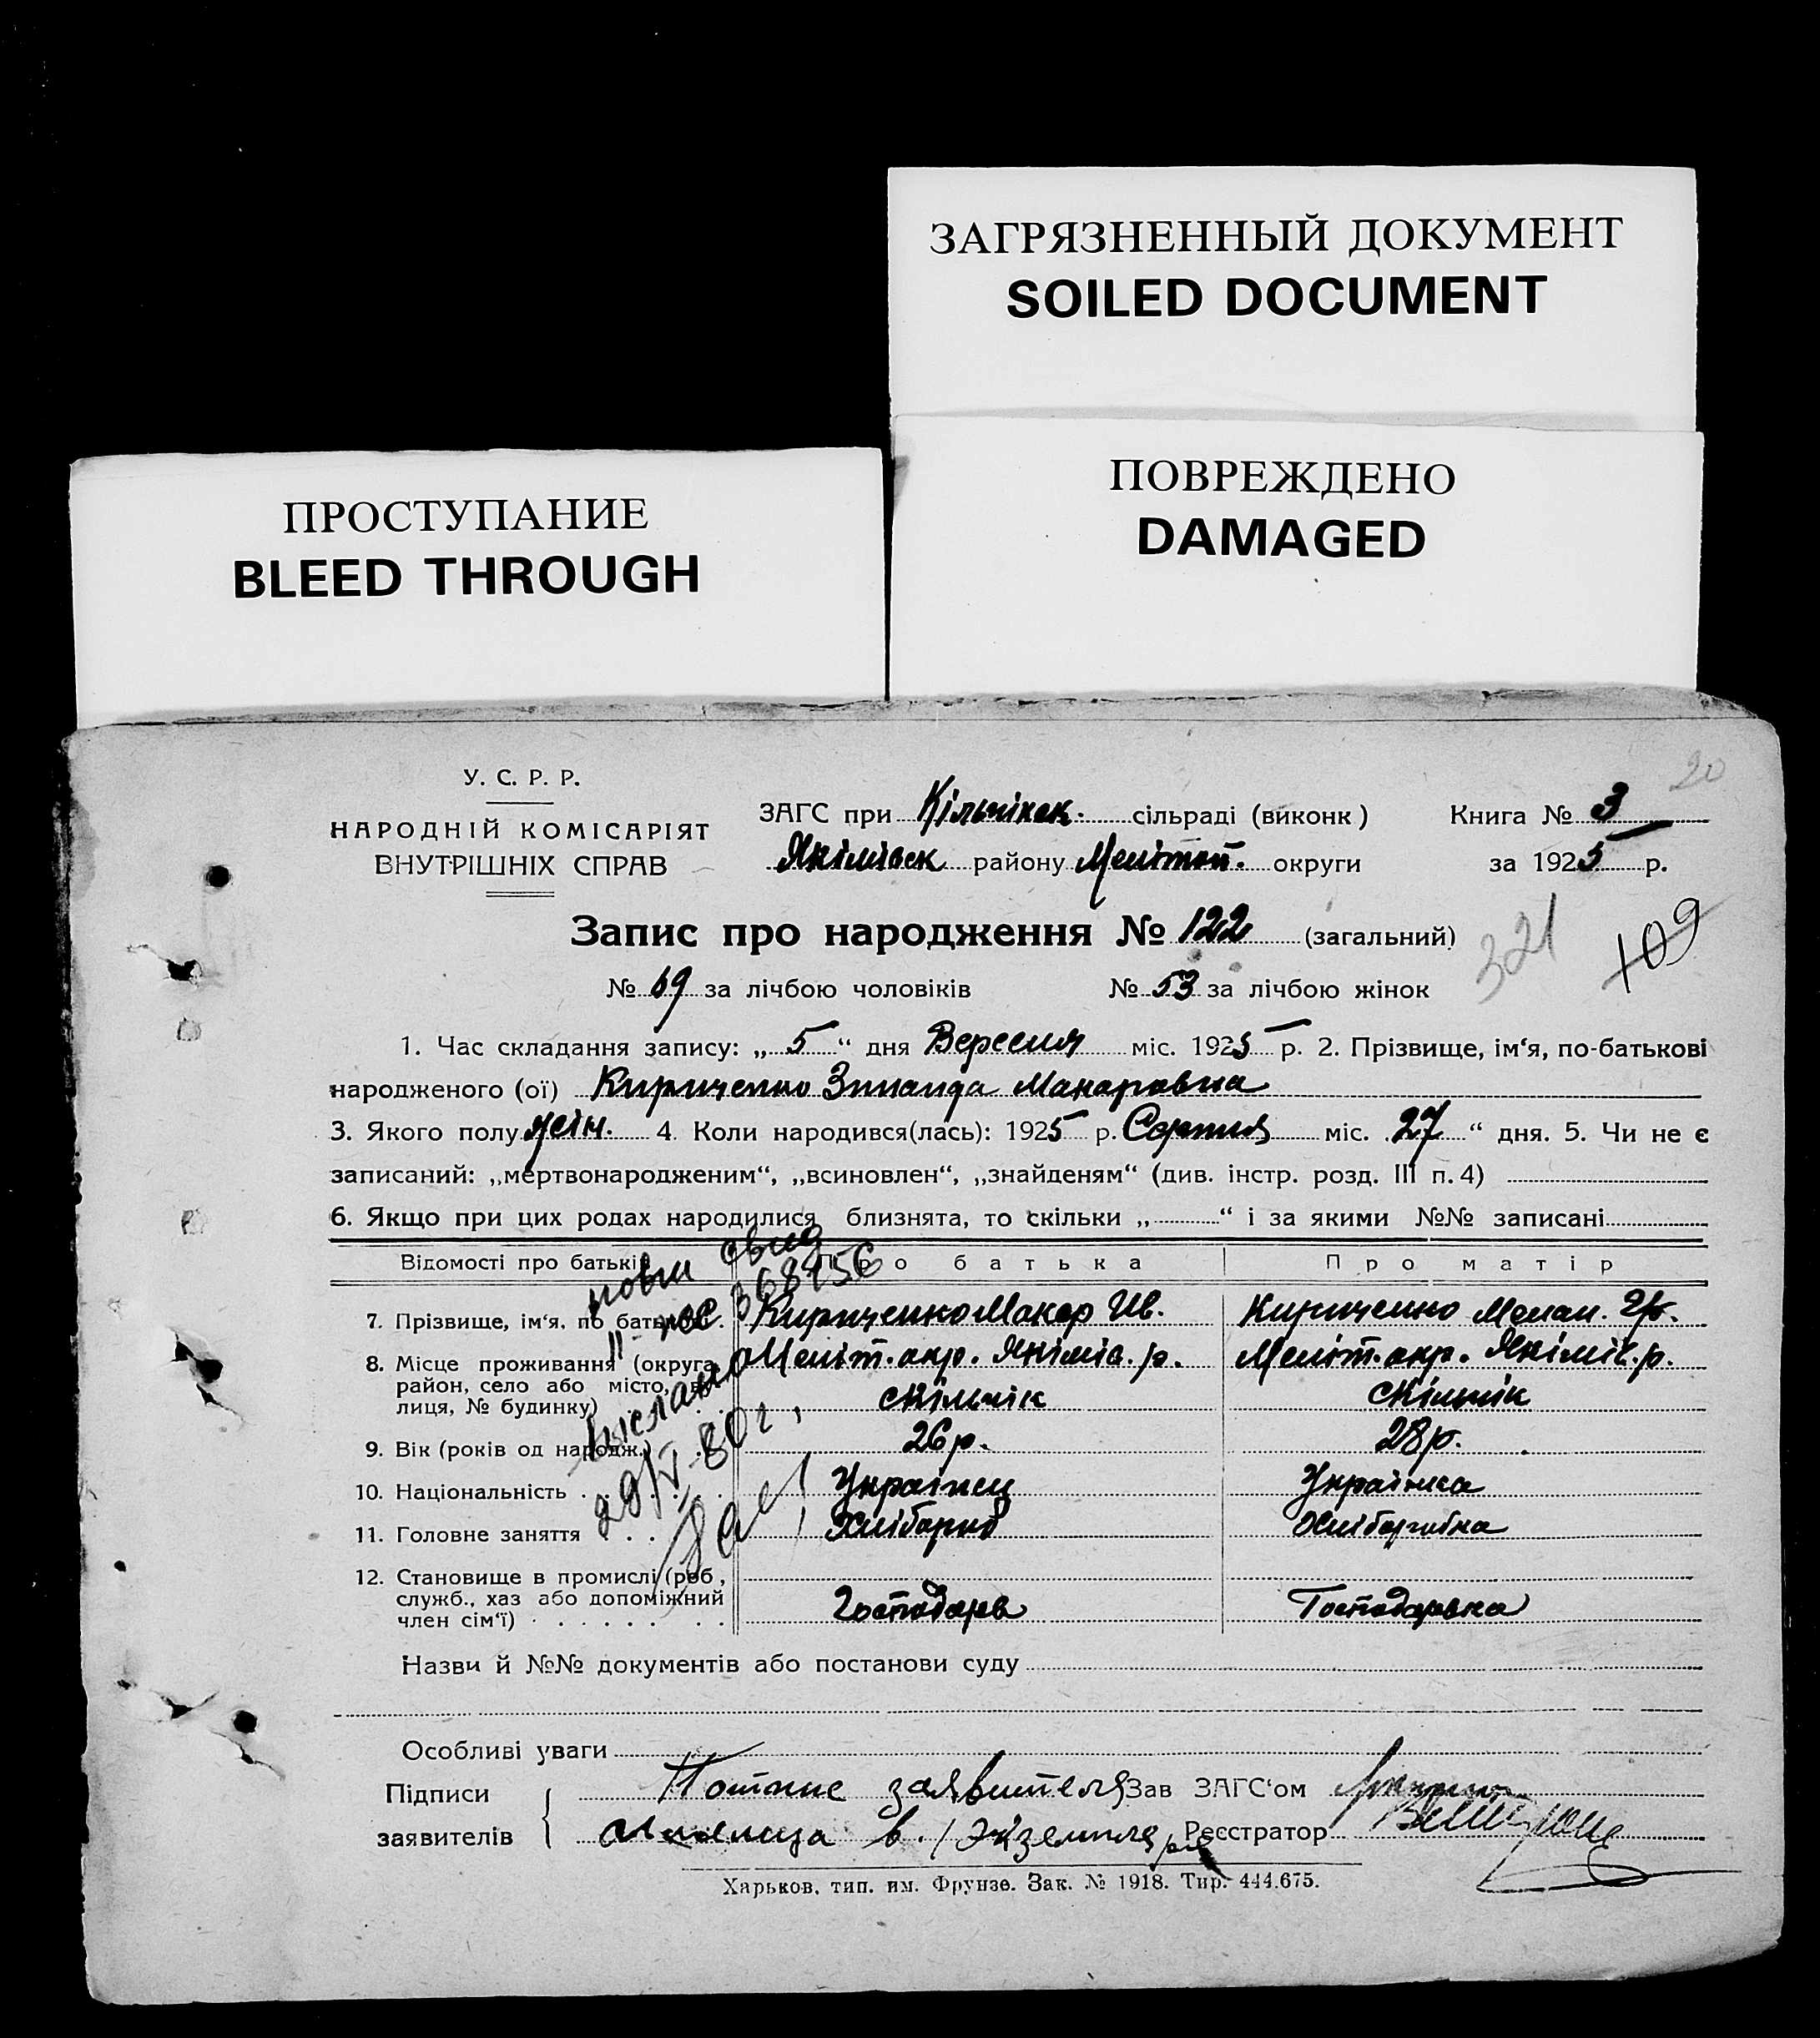 ЗАГРЯЗНЕННЫЙ ДОКУМЕНТ
SOILED DOCUMENT
ПОВРЕЖДЕНО
DAMAGED
ПРОСТУПАНИЕ
BLEED THROUGH
20
У. С. Р. Р.
НАРОДНІЙ КОМІСАРІЯТ
ВНУТРІШНІХ СПРАВ
ЗАГС при Кільчікск. сільраді (виконк) Книга № 3
Якімівск району Мелітоп. округи за 1925 р.
Запис про народження № 122 (загальний) 321 109
№ 69 за лічбою чоловіків № 53 за лічбою жінок
1. Час складання запису: „5“ дня Вересня міс. 1925 р. 2. Прізвище, ім‘я, по-батькові
народженого (ої) Кириченко Зинаида Макаровна
3. Якого полу жін. 4. Коли народився(лась): 1925 р. Серпня міс. 27“ дня. 5. Чи не є
записаний: „мертвонародженим“, „всиновлен“, „знайденям“ (див. інстр. розд. III п. 4)
6. Якщо при цих родах народилися близнята, то скільки „ “ і за якими №№ записані
Відомості про батьків Про батька Про матір
7. Прізвище, ім‘я, по батькові Кириченко Макар Ив. Кириченко Мелан. Гр.
8. Місце проживання (округа, Меліт. окр. Якімів. р. Меліт. окр. Якімів. р.
район, село або місто, ву-
лиця, № будинку) с Кільчік с Кільчік
9. Вік (років од народж.) 26 р. 28 р.
10. Національність Украінец Украінка
11. Головне заняття Хлібороб Хліборобка
12. Становище в промислі (роб.,
служб., хаз або допоміжний Господарь Господарька
член сім‘ї)
повт свид
368156
выслано
29/V-80г.
Назви й №№ документів або постанови суду
Особливі уваги
Підписи заявителя Зав ЗАГС‘ом
заявителів Реєстратор
Харьков, тип. им. Фрунзе. Зак. № 1918. Тир. 444.675.